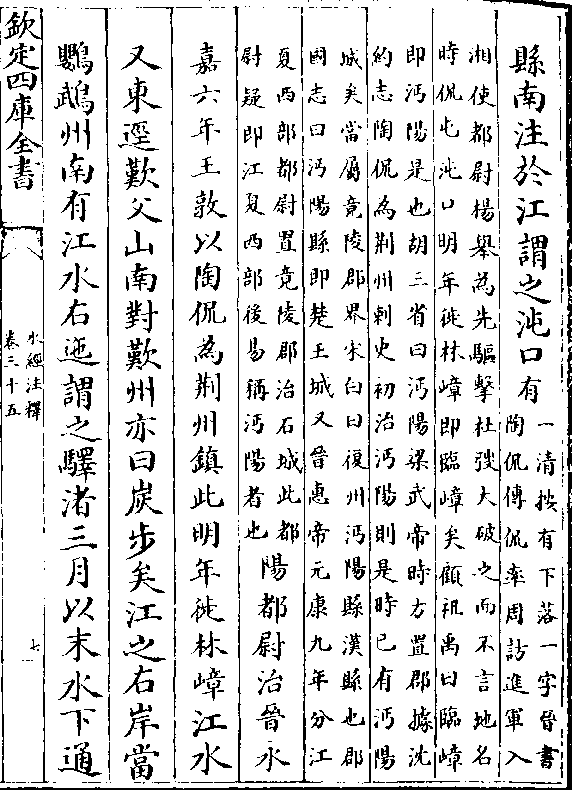 縣南注於江謂之沌口有
一清按有下落一字晉書
陶侃傳侃率周訪進軍入
湘使都尉楊舉為先驅擊杜弢大破之而不言地名
時侃屯沌口明年徙林嶂即臨嶂矣顧祖禹曰臨嶂
即沔陽是也胡三省曰沔陽梁武帝時方置郡據沈
約志陶侃為荆州刺史初治沔陽則是時已有沔陽
城矣當屬竟陵郡界宋白曰復州沔陽縣漢縣也郡
國志曰沔陽縣即楚王城又晉惠帝元康九年分江
夏西部都尉置竟陵郡治石城此都
尉疑即江夏西部後易稱沔陽者也
陽都尉治晉永
嘉六年王敦以陶侃為荆州鎮此明年徙林嶂江水
又東逕歎父山南對歎州亦曰炭步矣江之右岸當
鸚鵡州南有江水右迤謂之驛渚三月以末水下通
欽定四庫全書
水經注釋
卷三十五
七